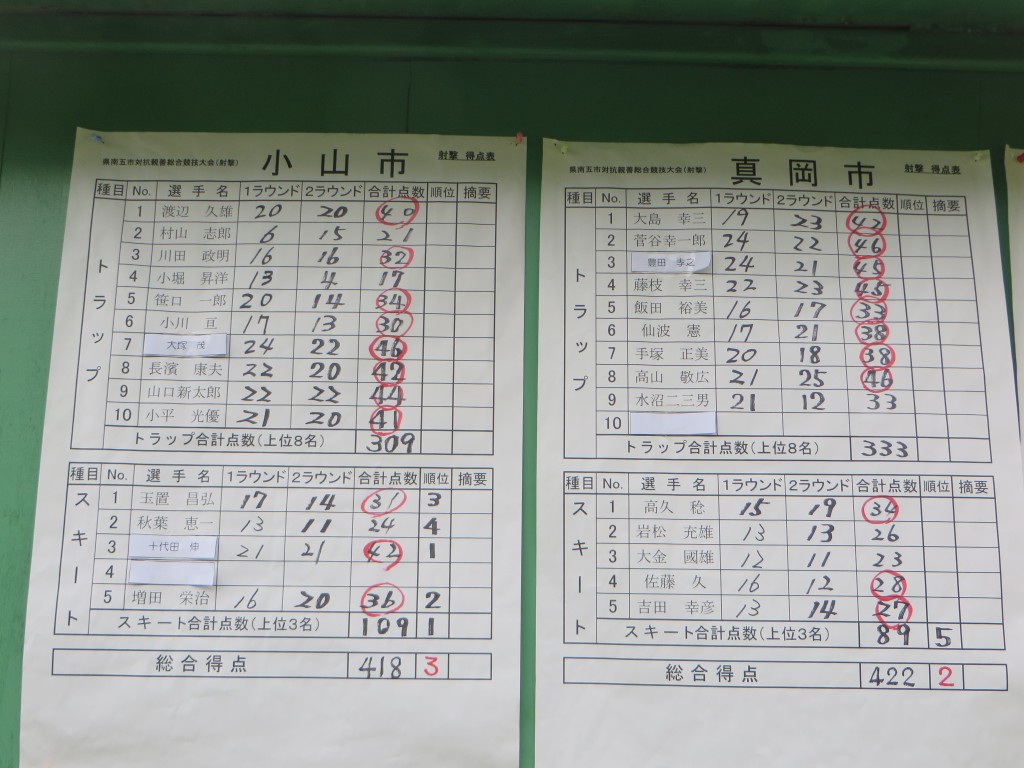 県南五市対抗親善総合競技大会(射撃) 小山市 射撃 得点表
種目 No. 選手名 1ラウンド 2ラウンド 合計点数 順位 摘要
トラップ
1 渡辺 久雄 20 20 40
2 村山 志郎 6 15 21
3 川田 政明 16 16 32
4 小堀 昇洋 13 4 17
5 笹口 一郎 20 14 34
6 小川 亘 17 13 30
7 大塚 茂 24 22 46
8 長濱 康夫 22 20 42
9 山口新太郎 22 22 44
10 小平 光優 21 20 41
トラップ合計点数(上位8名) 309
種目 No. 選手名 1ラウンド 2ラウンド 合計点数 順位 摘要
スキート
1 玉置 昌弘 17 14 31 3
2 秋葉 恵一 13 11 24 4
3 十代田 伸 21 21 42 1
4
5 増田 栄治 16 20 36 2
スキート合計点数(上位3名) 109 1
総合得点 418 3
県南五市対抗親善総合競技大会(射撃) 真岡市 射撃 得点表
種目 No. 選手名 1ラウンド 2ラウンド 合計点数 順位 摘要
トラップ
1 大島 幸三 19 23 42
2 菅谷幸一郎 24 22 46
3 豊田 24 21 45
4 藤枝 幸三 22 23 45
5 飯田 裕美 16 17 33
6 仙波 憲 17 21 38
7 手塚 正美 20 18 38
8 高山 敬広 21 25 46
9 水沼二三男 21 12 33
10
トラップ合計点数(上位8名) 333
種目 No. 選手名 1ラウンド 2ラウンド 合計点数 順位 摘要
スキート
1 高久 稔 15 19 34
2 岩松 充雄 13 13 26
3 大金 國雄 12 11 23
4 佐藤 久 16 12 28
5 吉田 幸彦 13 14 27
スキート合計点数(上位3名) 89 5
総合得点 422 2